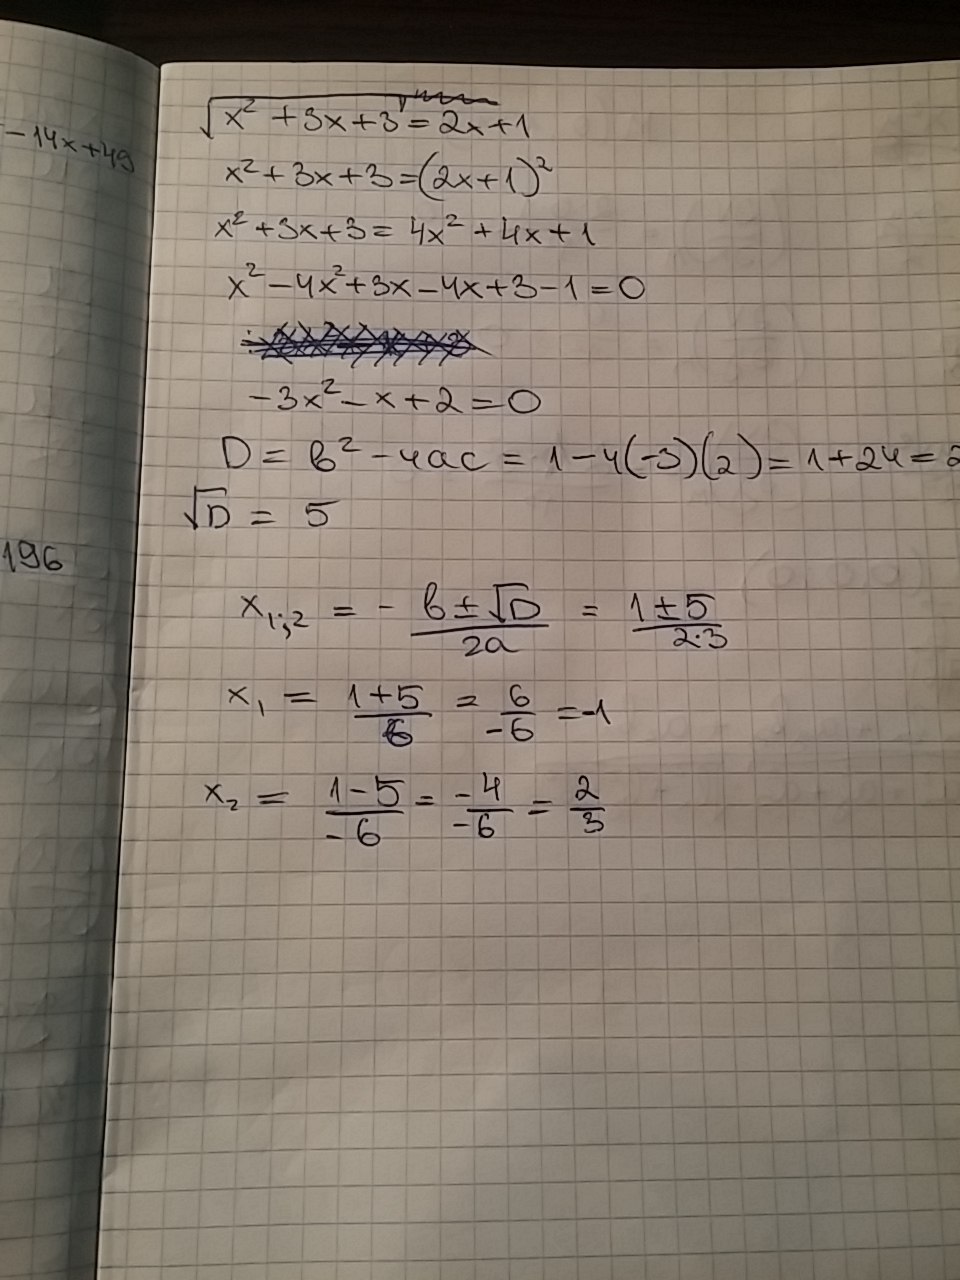 -14x+49
196
√x² + 3x + 3 = 2x + 1
x² + 3x + 3 = (2x + 1)²
x² + 3x + 3 = 4x² + 4x + 1
x² - 4x² + 3x - 4x + 3 - 1 = 0
-3x² - x + 2 = 0
D = в² - 4ac = 1 - 4(-3)(2) = 1 + 24 = 2
√D = 5
x₁;₂ = - в ± √D / 2a = 1 ± 5 / 2·3
x₁ = 1 + 5 / 6 = 6 / -6 = -1
x₂ = 1 - 5 / -6 = -4 / -6 = 2 / 3